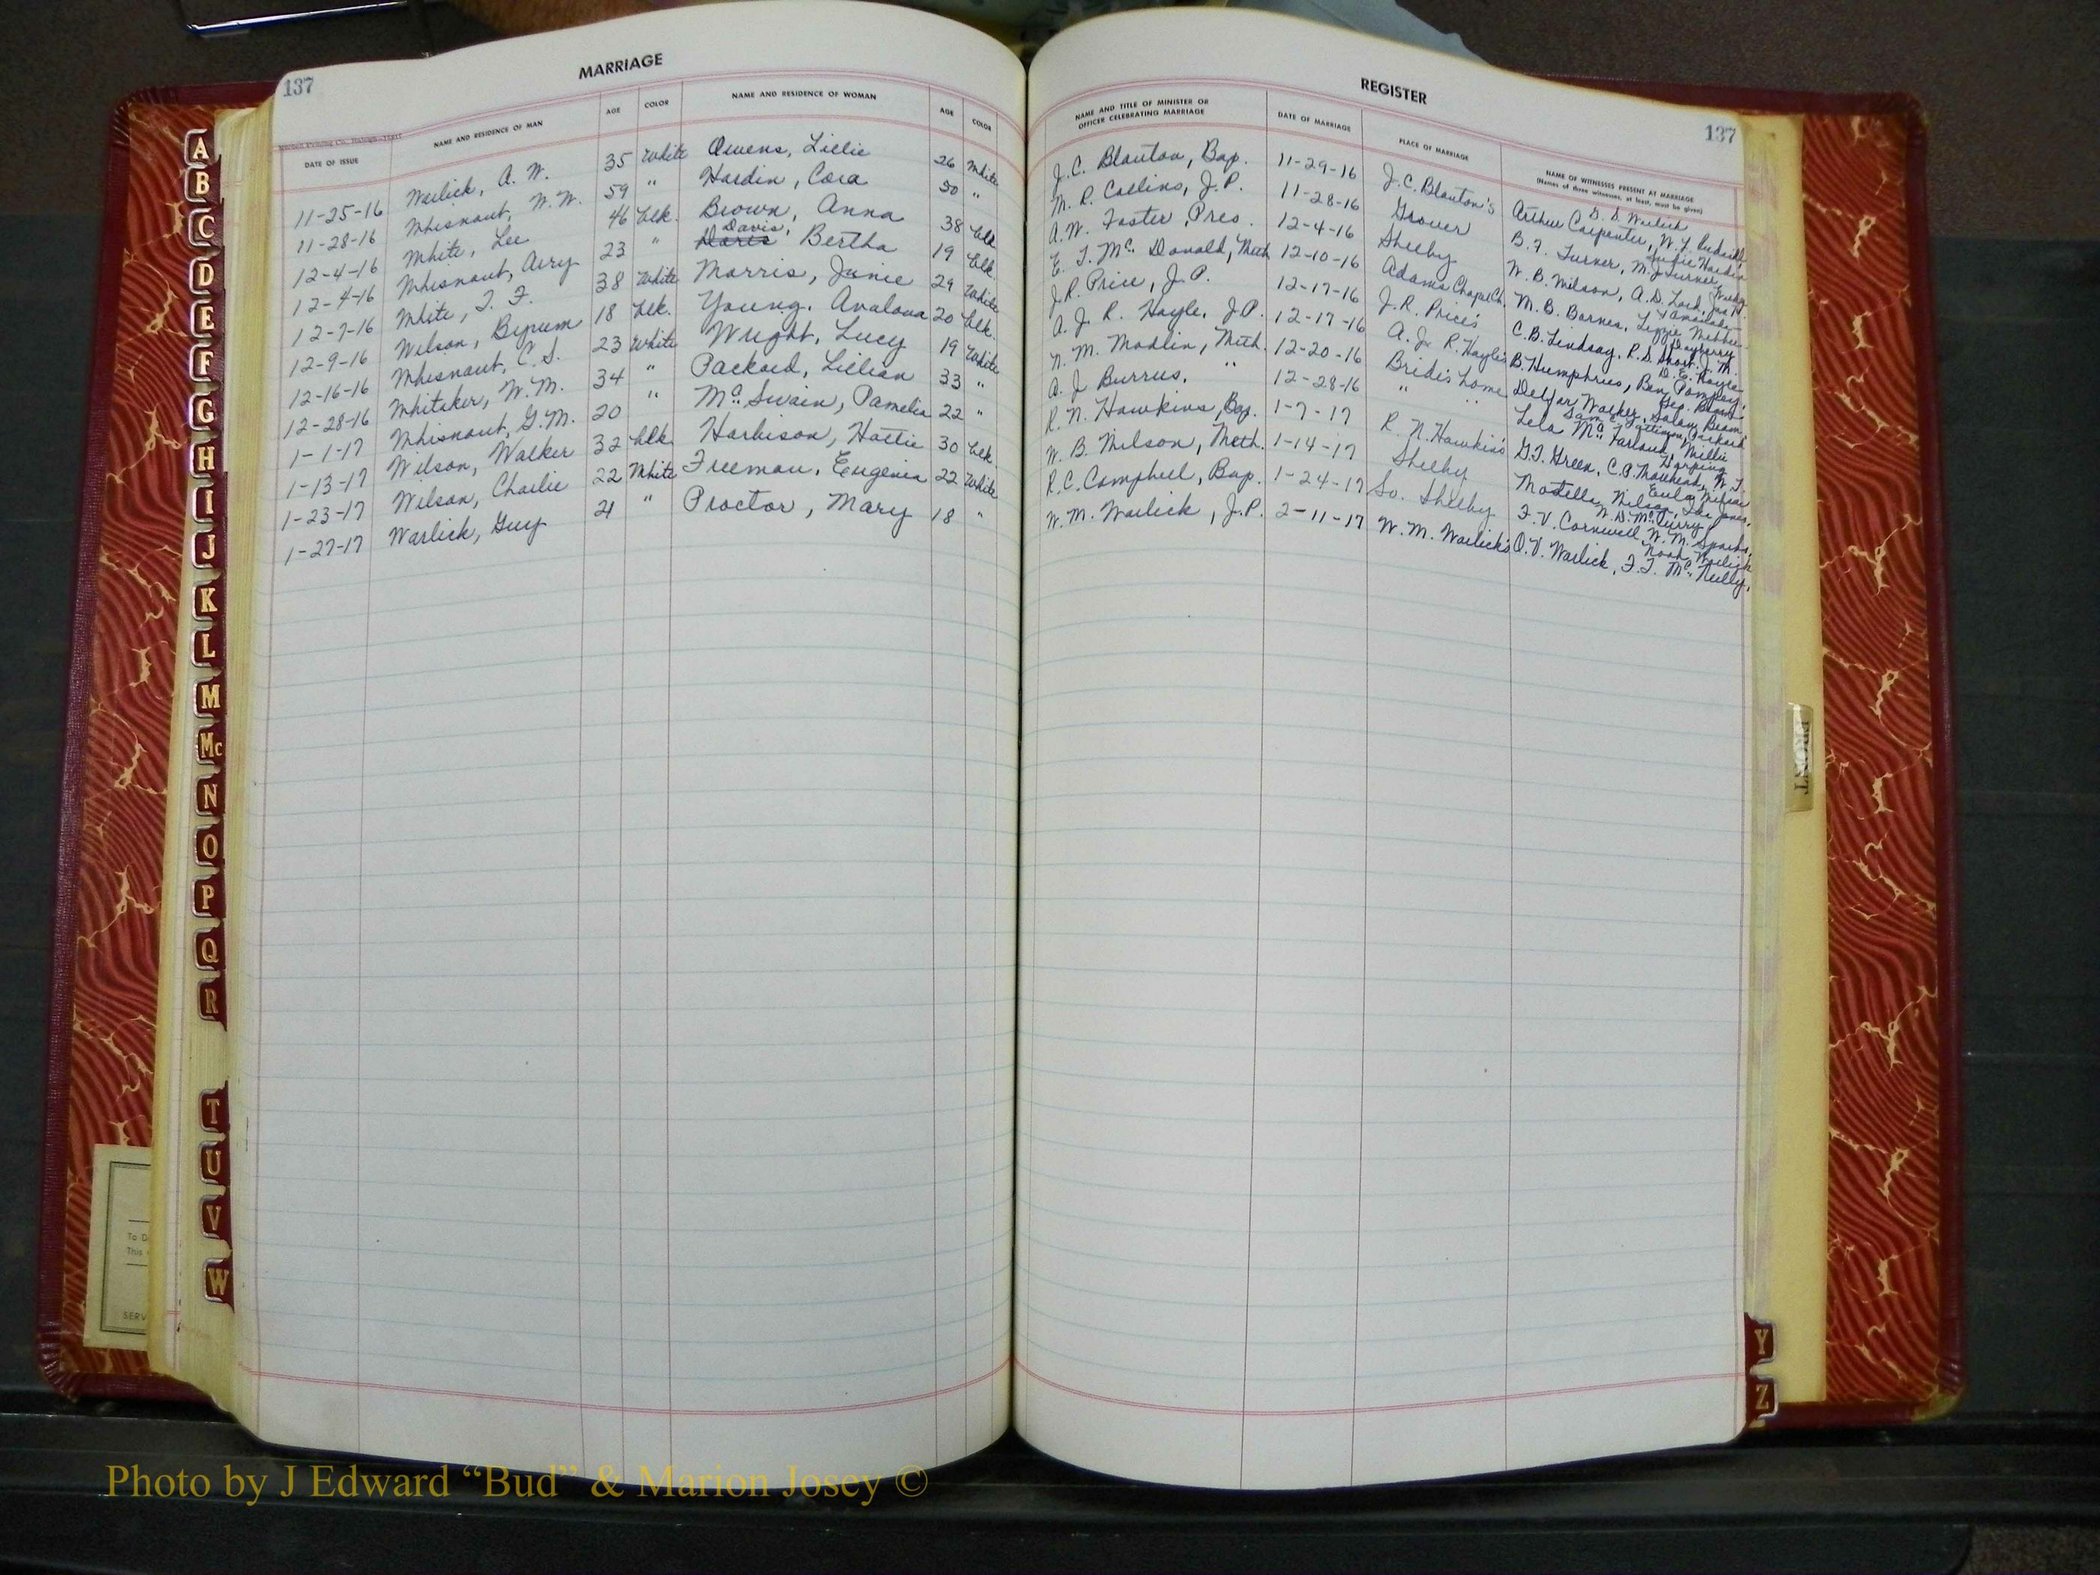 137
MARRIAGE
DATE OF ISSUE NAME AND RESIDENCE OF MAN AGE COLOR NAME AND RESIDENCE OF WOMAN AGE COLOR
11-25-16 Warlick, A. W. 35 White Owens, Lillie 26 White
11-28-16 Whisnant, W. W. 59 " Hardin, Cora 50 "
12-4-16 White, Lee 46 blk. Brown, Anna 38 blk
Davis,
12-4-16 Whisnant, Avry 23 " Doris Bertha 19 blk.
12-7-16 White, T. F. 38 White Morris, Janie 29 White
12-9-16 Wilson, Bynum 18 blk. Young, Avalona 20 blk.
12-16-16 Whisnant, C. S. 23 White Wright, Lucy 19 White
12-28-16 Whitaker, W. M. 34 " Packard, Lillian 33 "
1-1-17 Whisnant, G. M. 20 " Mc Swain, Pamelia 22 "
1-13-17 Wilson, Walker 32 blk Harbison, Hattie 30 blk.
1-23-17 Wilson, Charlie 22 White Freeman, Eugenia 22 White
1-27-17 Warlick, Guy 21 " Proctor, Mary 18 "
REGISTER
137
NAME AND TITLE OF MINISTER OR OFFICER CELEBRATING MARRIAGE DATE OF MARRIAGE PLACE OF MARRIAGE NAME OF WITNESSES PRESENT AT MARRIAGE
(Names of three witnesses, at least, must be given)
D. D. Warlick
J. C. Blanton, Bap. 11-29-16 J. C. Blanton's Arthur Carpenter, W. F.
M. R. Collins, J. P. 11-28-16 Grover B. F. Turner, M. J. Turner,
A. W. Foster Pres. 12-4-16 Shelby W. B. Wilson, A. D. Lord,
E. T. Mc Donald, Meth 12-10-16 Adams Chapel Ch. M. B. Barnes, Lizzie Webber
J. R. Price, J. P. 12-17-16 J. R. Price's C. B. Lindsay, R. S.
A. J. R. Hoyle, J. P. 12-17-16 A. J. R. Hoyle's B. Humphries, Ben Pompey,
N. M. Modlin, Meth. 12-20-16 Bride's home Walker,
A. J. Burrus, " 12-28-16 " "
R. N. Hawkins, Bap. 1-7-17 R. N. Hawkins' Lela Mc Farland, Millie
W. B. Wilson, Meth. 1-14-17 Shelby G. T. Green, C. A.
R. C. Campbell, Bap. 1-24-17 So. Shelby F. V. Cornwell, W. M. Sparks,
Noah Warlick
W. M. Warlick, J. P. 2-11-17 W. M. Warlick's O. V. Warlick, F. T. Mc Neilly,
A
B
C
D
E
F
G
H
I
J
K
L
M
Mc
N
O
P
Q
R
T
U
V
W
Y
Z
To D
This
SERV
Photo by J Edward “Bud” & Marion Josey ©